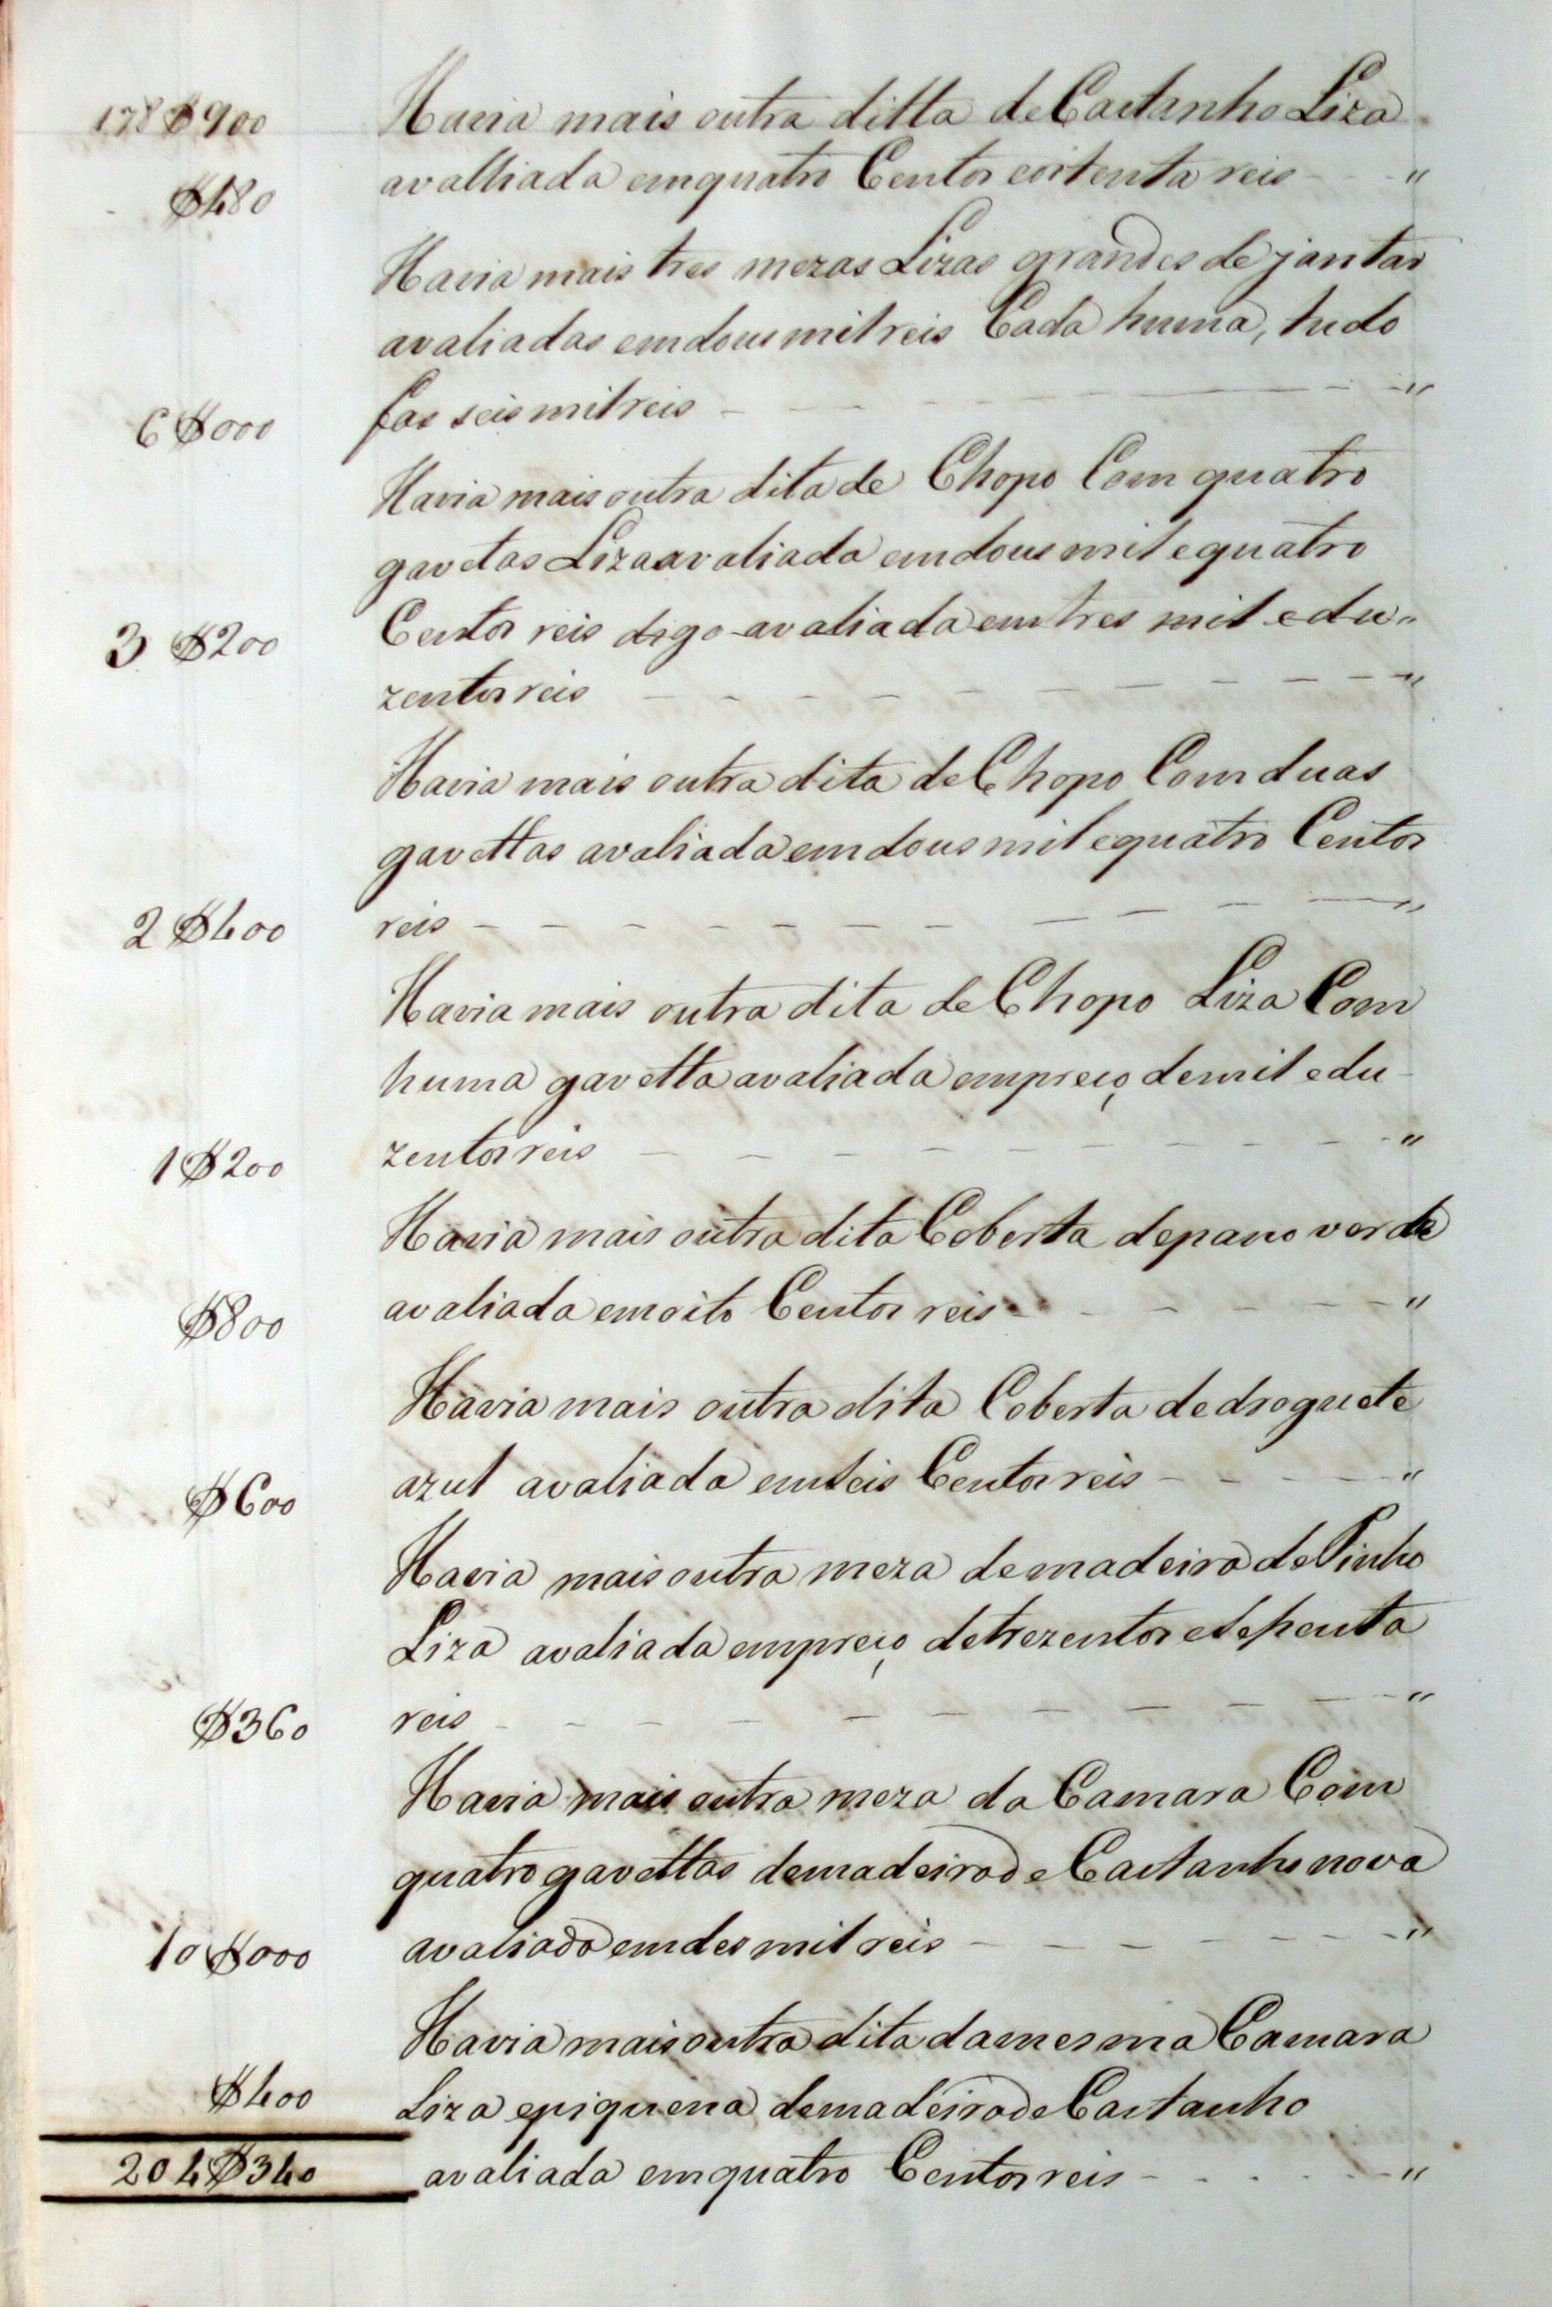 178$900 Havia mais outra ditta de Castanho Liza
avalliada em quatro Centos e oitenta reis "
$480
Havia mais tres mezas Lizas grandes de jantar
avaliadas em dous mil reis Cada huma, tudo
6$000 fas seis mil reis "
Havia mais outra dita de Chopo Com quatro
gavetas Liza avaliada em dous mil e quatro
3$200 Centos reis digo avaliada em tres mil e du"
zentos reis "
Havia mais outra dita de Chopo Com duas
gavettas avaliada em dous mil e quatro Centos
2$400 reis "
Havia mais outra dita de Chopo Liza Com
huma gavetta avaliada em preço de mil e du-
1$200 zentos reis "
Havia mais outra dita Coberta de pano verde
$800 avaliada em oito Centos reis "
Havia mais outra dita Coberta de droguete
azul avaliada em seis Centos reis "
$600
Havia mais outra meza de madeira de Pinho
Liza avaliada em preço de trezentos e sessenta
$360 reis "
Havia mais outra meza da Camara Com
quatro gavettas de madeira de Castanho nova
10$000 avaliada em des mil reis "
Havia mais outra dita da mesma Camara
$400 Liza e piquena de madeira de Castanho
204$340 avaliada em quatro Centos reis "